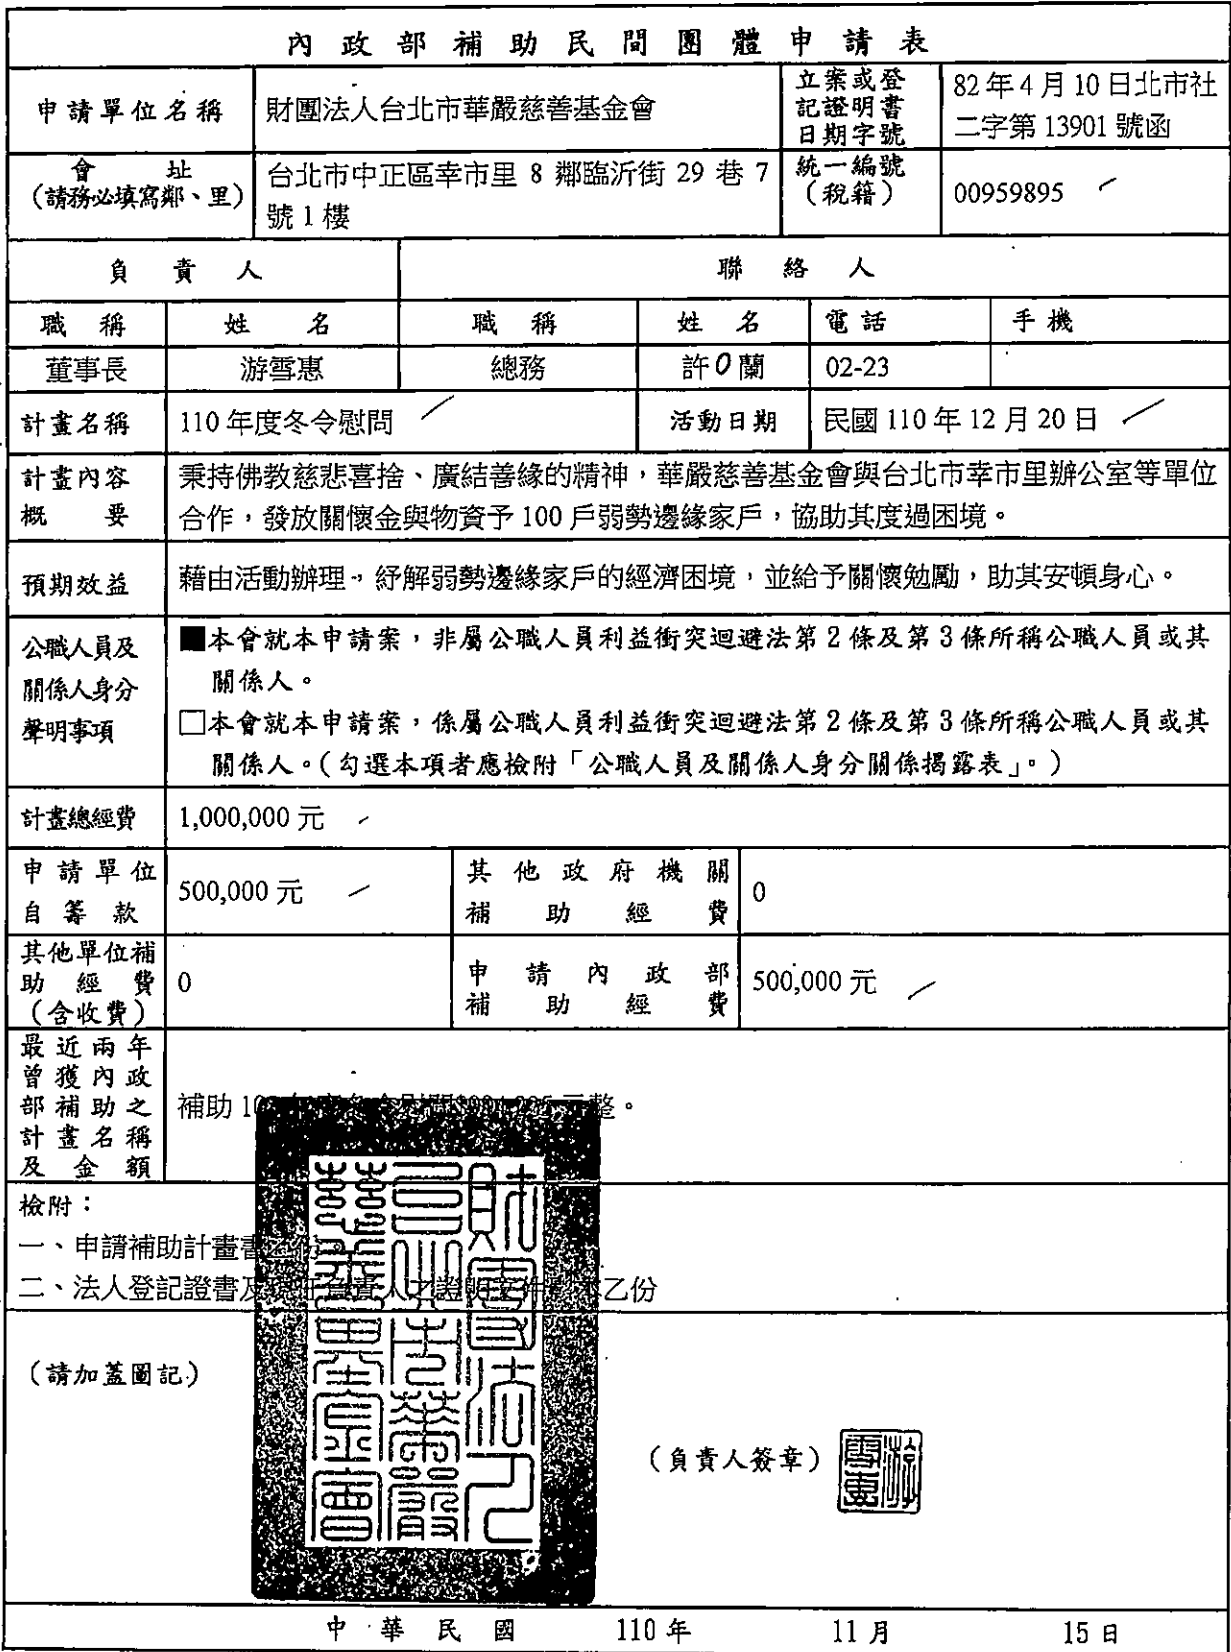 內政部補助民間團體申請表
申請單位名稱
財團法人台北市華嚴慈善基金會
立案或登
記證明書
日期字號
82年4月10日北市社
二字第13901號函
會址
(請務必填寫鄰、里)
台北市中正區幸市里 8 鄰臨沂街 29 巷 7
號1樓
統一編號
(稅籍)
00959895
負責人
聯絡人
職稱
姓名
職稱
姓名
電話
手機
董事長
游雪惠
總務
許O蘭
02-23
計畫名稱
110年度冬令慰問
活動日期
民國110年12月20日
計畫內容
概要
秉持佛教慈悲喜捨、廣結善緣的精神，華嚴慈善基金會與台北市幸市里辦公室等單位
合作，發放關懷金與物資予100戶弱勢邊緣家戶，協助其度過困境。
預期效益
藉由活動辦理，紓解弱勢邊緣家戶的經濟困境，並給予關懷勉勵，助其安頓身心。
公職人員及
關係人身分
聲明事項
■本會就本申請案，非屬公職人員利益衝突迴避法第2條及第3條所稱公職人員或其
關係人。
□本會就本申請案，係屬公職人員利益衝突迴避法第2條及第3條所稱公職人員或其
關係人。(勾選本項者應檢附「公職人員及關係人身分關係揭露表」。)
計畫總經費
1,000,000元
申請單位
自籌款
500,000元
其他政府機關
補助經費
0
其他單位補
助經費
(含收費)
0
申請內政部
補助經費
500,000元
最近兩年
曾獲內政
部補助之
計畫名稱
及金額
補助10 元整。
檢附：
一、申請補助計畫書
二、法人登記證書及 乙份
(請加蓋圖記)
財團法人
台北市華嚴
慈善基金會
(負責人簽章)
游
雪惠
中華民國 110年 11月 15日